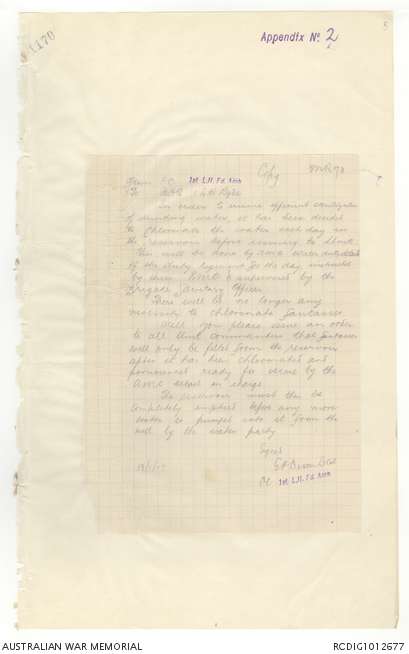 170
5
Appendix No 2
Copy
From OC 1st. L.H. Fd. Amb
To 1st L.H. Bgde
In order to ensure efficient
of drinking water, it has been decided
to chlorinate the water each day in
the reservoir before issuing to Units.
This will be done by AMC
of the duty regiment for the day, instructed
by this Unit & supervised by the
Brigade Sanitary Officer
There will be no longer any
necessity to chlorinate fantasses.
Will you please issue an order
to all Unit commanders that fantasses
will only be filled from the reservoir
after it has been chlorinated and
pronounced ready for issue by the
AMC detail in charge
The reservoir must then be
completely emptied before any more
water is pumped into it from the
well by the water party
Signed
OC 1st. L.H. Fd. Amb
AUSTRALIAN WAR MEMORIAL
RCDIG1012677